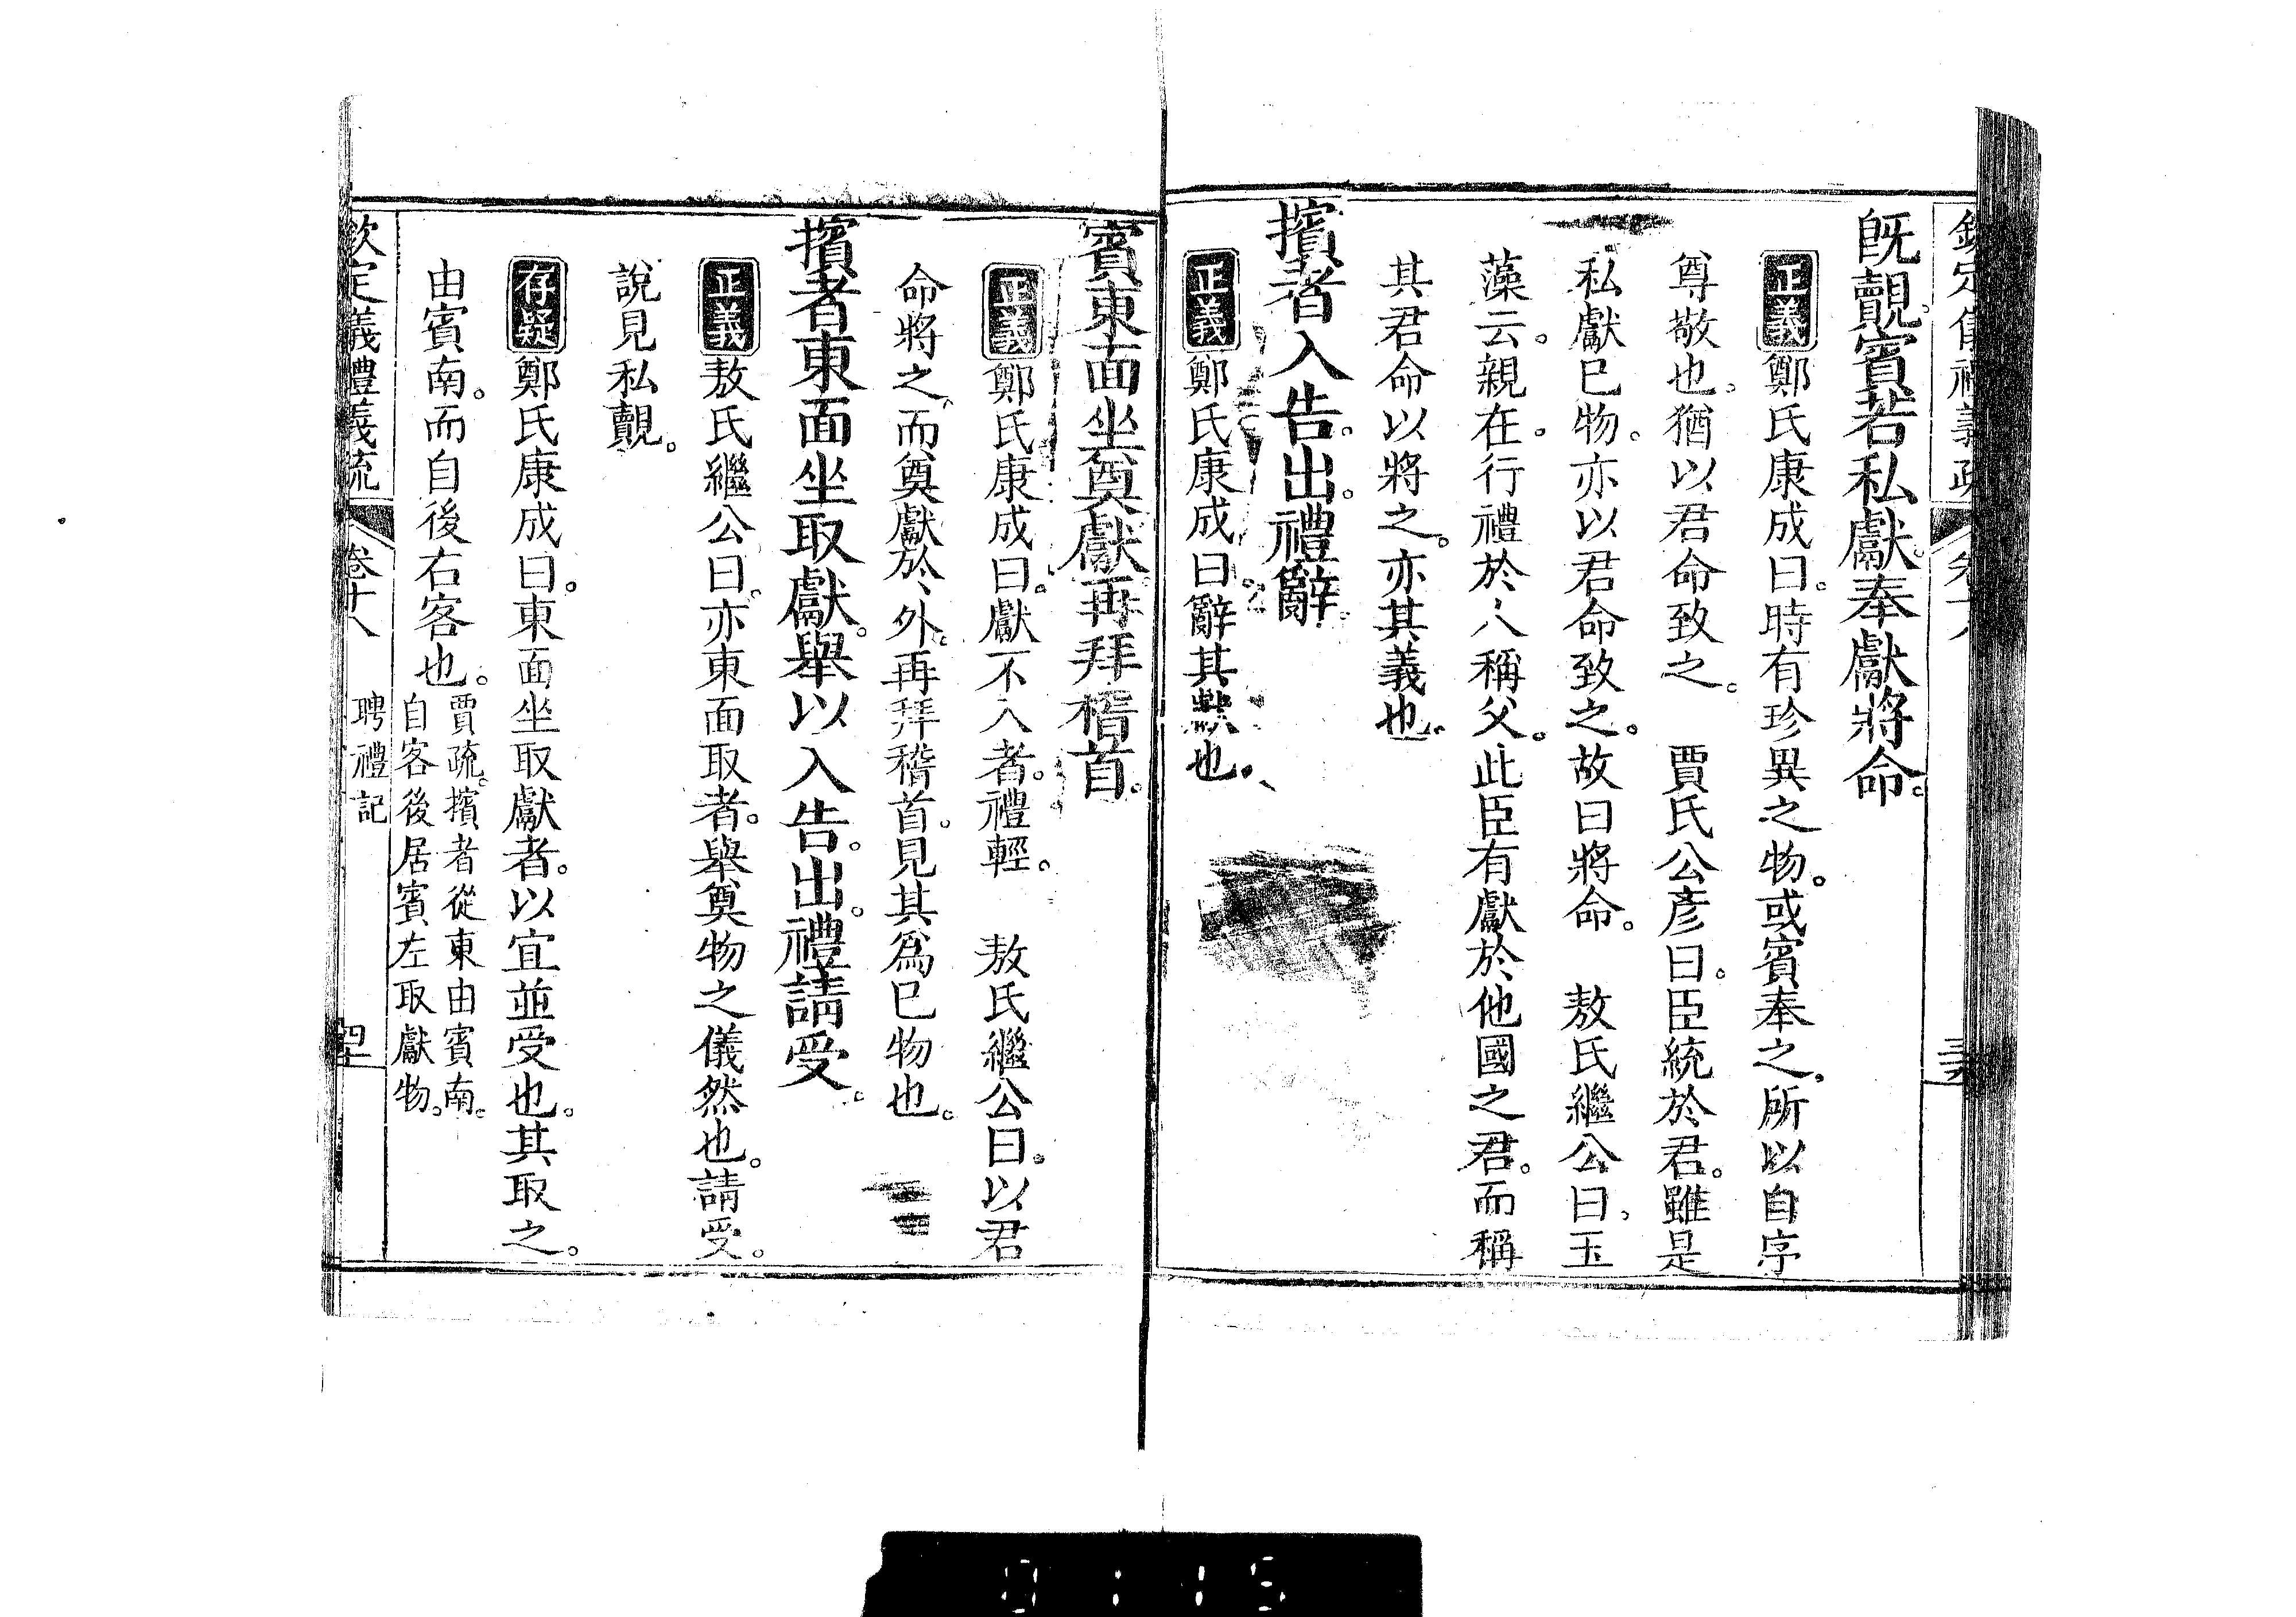 既覿。賓若私獻。奉獻將命。
正義鄭氏康成曰。時有珍異之物。或賓奉之。所以自序
尊敬也。猶以君命致之。 賈氏公彥曰。臣統於君。雖是
私獻已物。亦以君命致之。故曰將命。 敖氏繼公曰。玉
藻云。親在。行禮於人稱父。此臣有獻於他國之君。而稱
其君命以將之。亦其義也。
擯者入告。出。禮辭。
正義鄭氏康成曰。辭其獻也。
賓東面坐奠獻。再拜稽首。
正義鄭氏康成曰。獻不入者。禮輕。 敖氏繼公曰。以君
命將之。而奠獻於外。再拜稽首。見其為已物也。
擯者東面坐取獻。舉以入告。出。禮請受。
正義敖氏繼公曰。亦東面取者。舉奠物之儀然也。請受。
說見私覿。
存疑鄭氏康成曰。東面坐取獻者。以宜並受也。其取之。
由賓南。而自後右客也。賈疏。擯者從東由賓南。
自客後居賓左取獻物。
欽定義禮義疏 卷十八 聘禮記